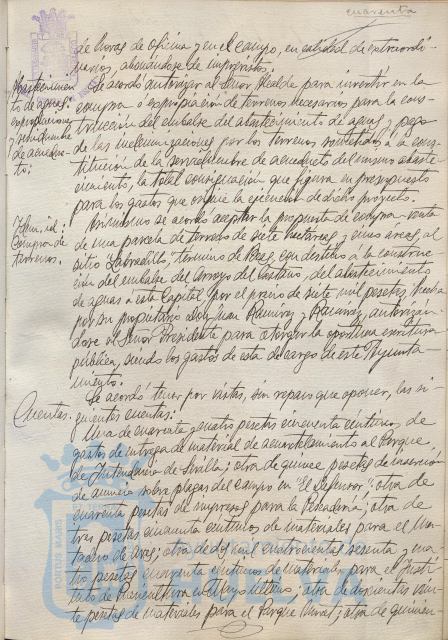 cuarenta
de horas de oficina y en el campo, en calidad de extraordi-
narios, abonándose de Imprevistos.
Abastecimien-
to de aguas:
expropiaciones
y servidumbre
de acueduc-
to:
Se acordó autorizar al Señor Alcalde para invertir en la
compra o expropiación de terrenos necesarios para la cons-
trucción del embalse del abastecimiento de aguas y pago
de las indemnizaciones por los terrenos sometidos a la cons-
titución de la servidumbre de acueducto del mismo abaste-
cimiento, la total consignación que figura en presupuesto
para los gastos que origine la ejecución de dicho proyecto.
Idem, id:
Compra de
terrenos.
Asimismo se acordó aceptar la propuesta de compra-venta
de una parcela de terreno de siete hectáreas y cinco áreas, al
sitio "Labradillo", término de Beas, con destino a la construc-
ción del embalse del arroyo del Castaño, del abastecimiento
de aguas a esta Capital, por el precio de siete mil pesetas, hecha
por su propietario don Juan Ramírez y Ramírez, autorizán-
dose al Señor Presidente para otorgar la oportuna escritura
pública, siendo los gastos de esta de cargo de este Ayunta-
miento.
Cuentas:
Se acordó tener por vistas, sin reparo que oponer, las si-
guientes cuentas:
Una de cuarenta y cuatro pesetas cincuenta céntimos, de
gastos de entrega de material de acuartelamiento al Parque
de Intendencia de Sevilla; otra de quince pesetas de inserción
de anuncio sobre plagas del campo en "El Defensor"; otra de
cuarenta pesetas de impresos para la Pescadería; otra de
tres pesetas cincuenta céntimos de materiales para el Ma-
tadero de Aves; otra de dos mil cuatrocientas sesenta y una
pesetas cincuenta céntimos de materiales para el Insti-
tuto de Puericultura
otra de doscientas vein-
te pesetas de materiales para el Parque Móvil; otra de quinien-
PORTUS MARIS